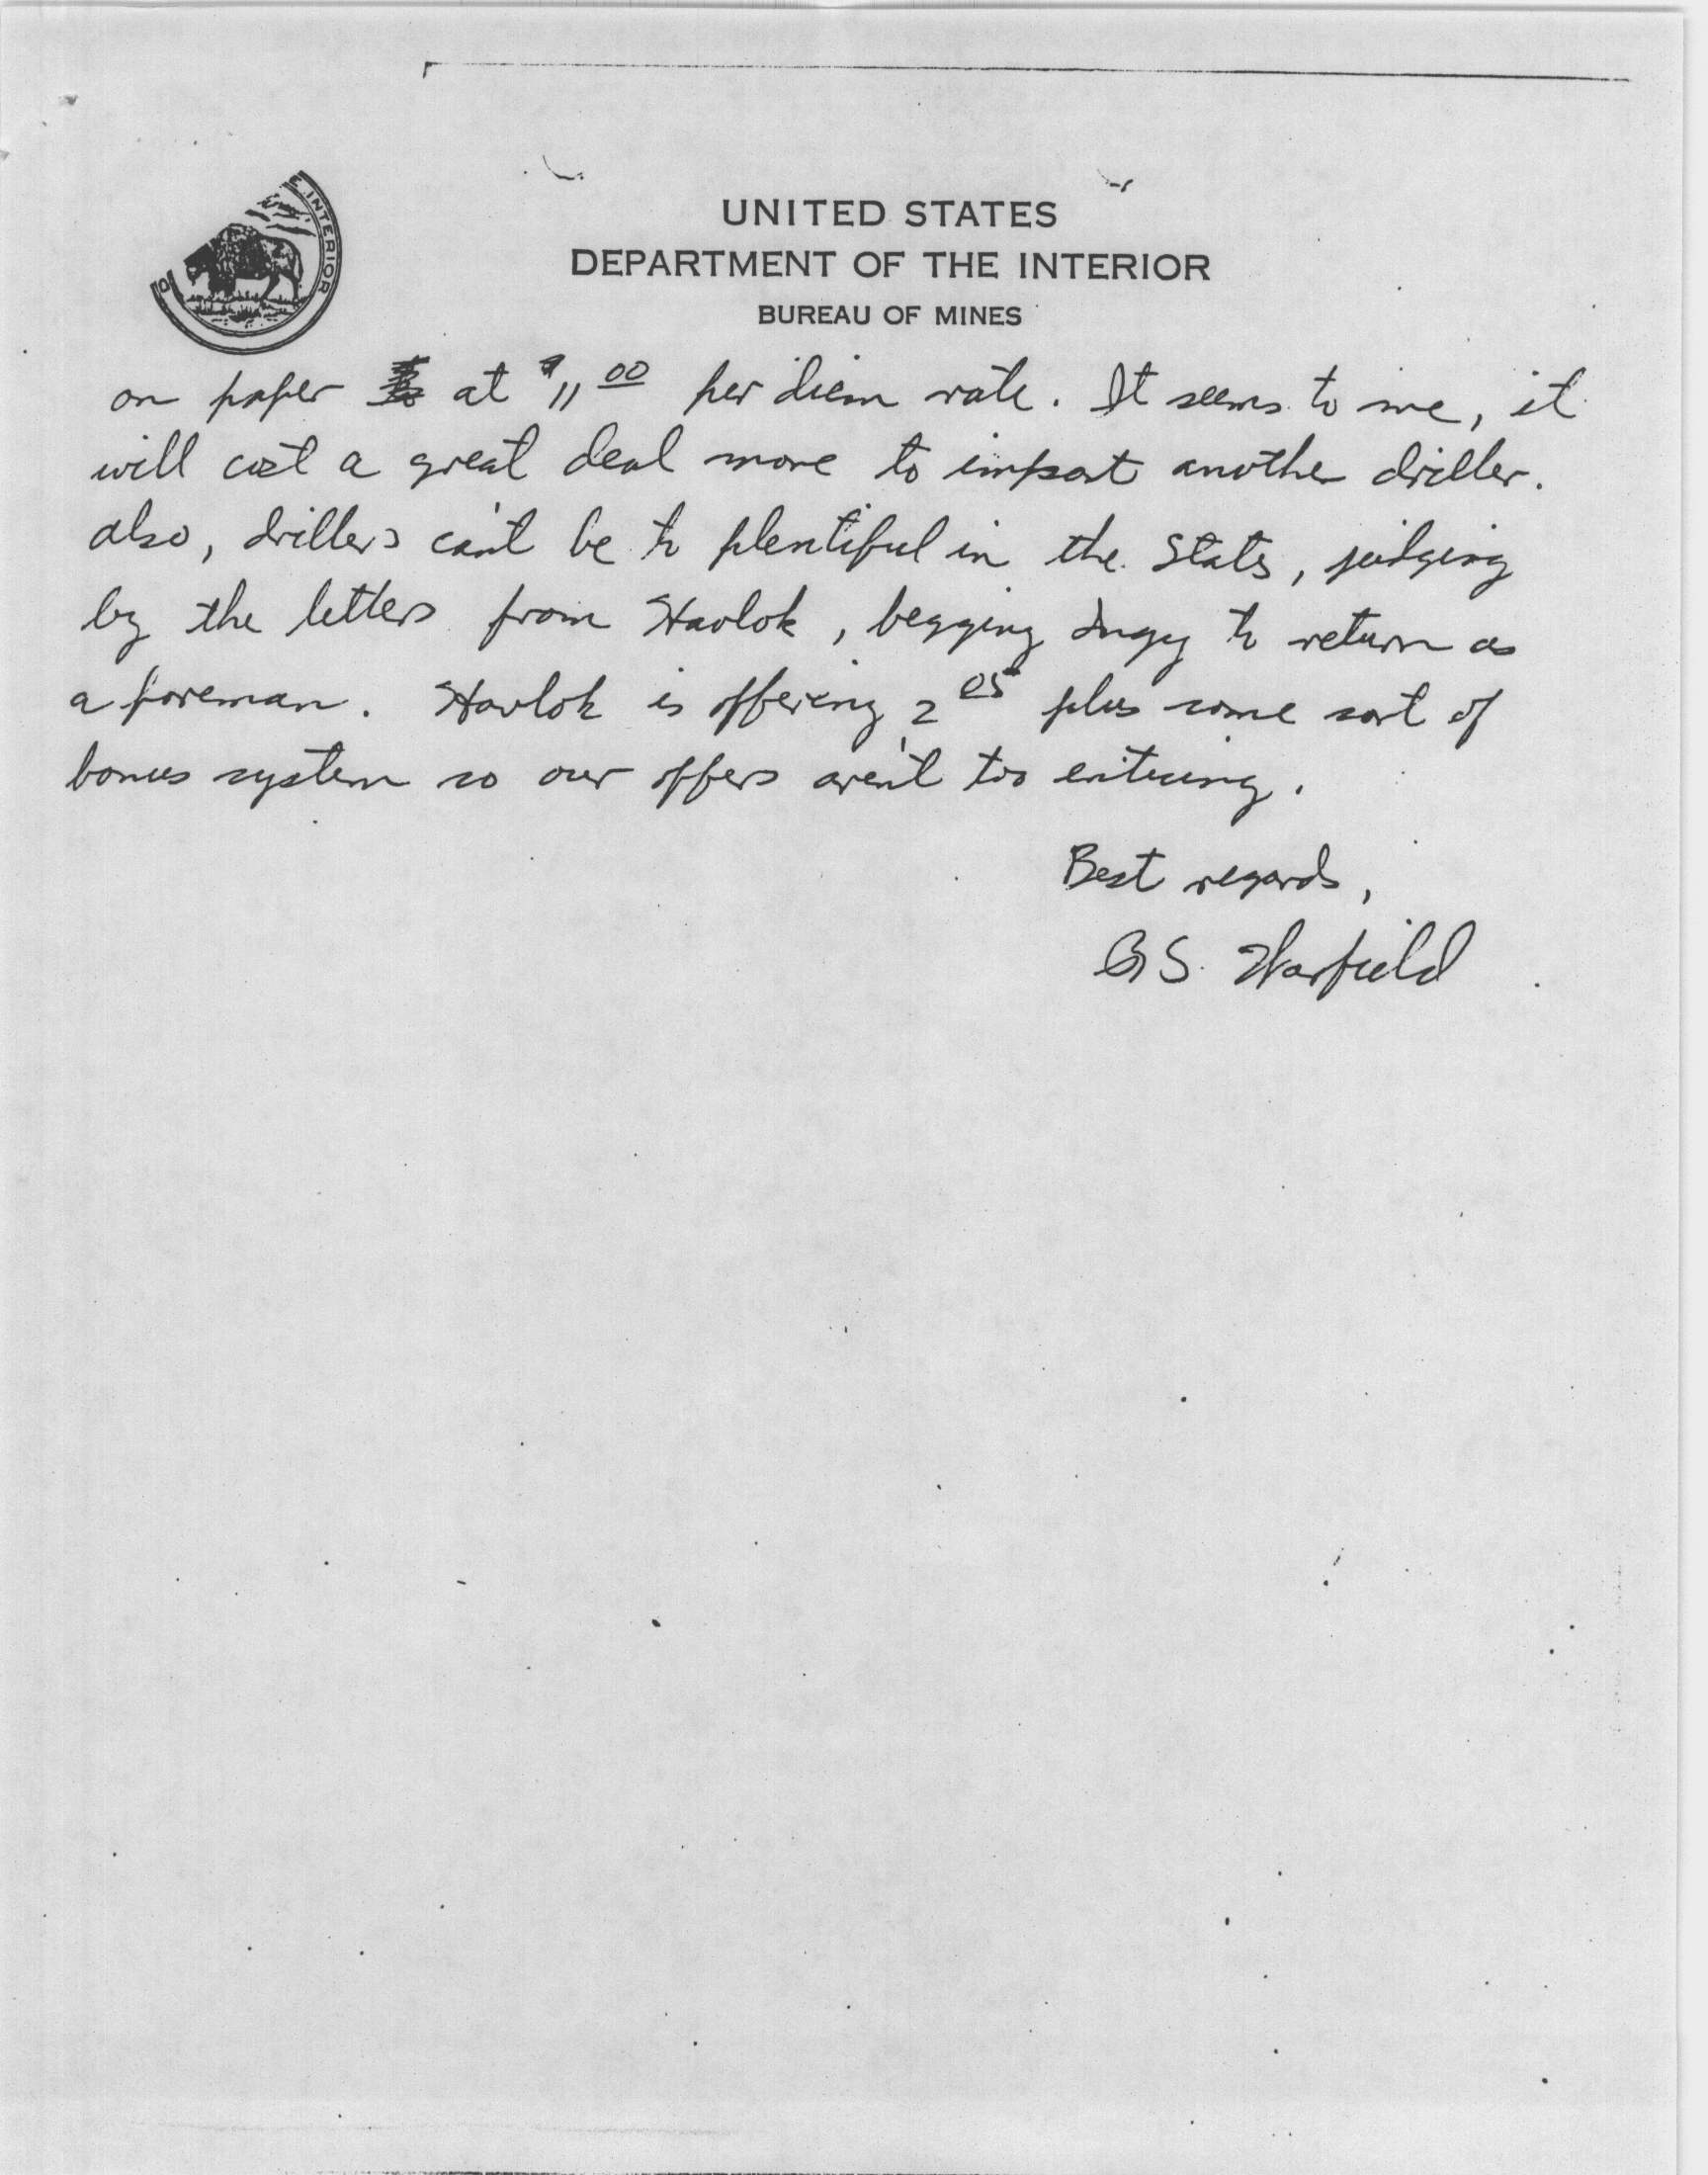 E INTERIOR
UNITED STATES
DEPARTMENT OF THE INTERIOR
BUREAU OF MINES
on paper at $11 00 per diem rate. It seems to me, it
will cost a great deal more to import another driller.
also, drillers can't be to plentiful in the States, judging
by the letters from Havlok, begging to return as
a foreman. Havlok is offering 2 05 plus some sort of
bonus system so our offers aren't too enticing.
Best regards,
S. Warfield